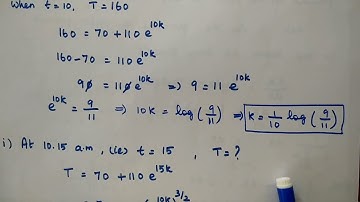 When t=10, T=160
160 = 70 + 110 e^{10k}
160-70 = 110 e^{10k}
90 = 110 e^{10k} ⇒ 9 = 11 e^{10k}
e^{10k} = 9/11 ⇒ 10k = log(9/11) ⇒ k = 1/10 log(9/11)
i) At 10.15 a.m, (ie) t = 15 , T = ?
T = 70 + 110 e^{15k}